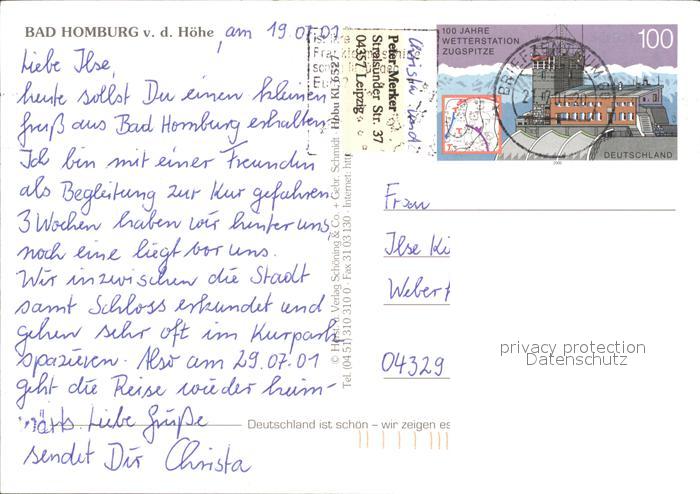 BAD HOMBURG v. d. Höhe, am 19.07.01
Liebe Ilse,
heute sollst Du einen kleinen
Gruß aus Bad Homburg erhalten
Ich bin mit einer Freundin
als Begleitung zur Kur gefahren
3 Wochen haben wir hinter uns
noch eine liegt vor uns.
Wir inzwischen die Stadt
samt Schloss erkundet und
gehen sehr oft im Kurpark
spazieren. Also am 29.07.01
geht die Reise wieder heim-
wärts. Liebe Grüße
sendet Dir Christa
Christa und
Peter Merker
Stralsunder Str. 37
04357 Leipzig
Hobu KL6527
© Horst O. Verlag Schöning & Co. + Gebr. Schmidt
Tel. (04 51) 310 310 0 · Fax 31 03 130 · Internet: http
Deutschland ist schön – wir zeigen es
100 JAHRE
WETTERSTATION
ZUGSPITZE
100
BRIEFZENTRUM
DEUTSCHLAND
2000
Frau
Ilse Ki
Weber
04329
privacy protection
Datenschutz